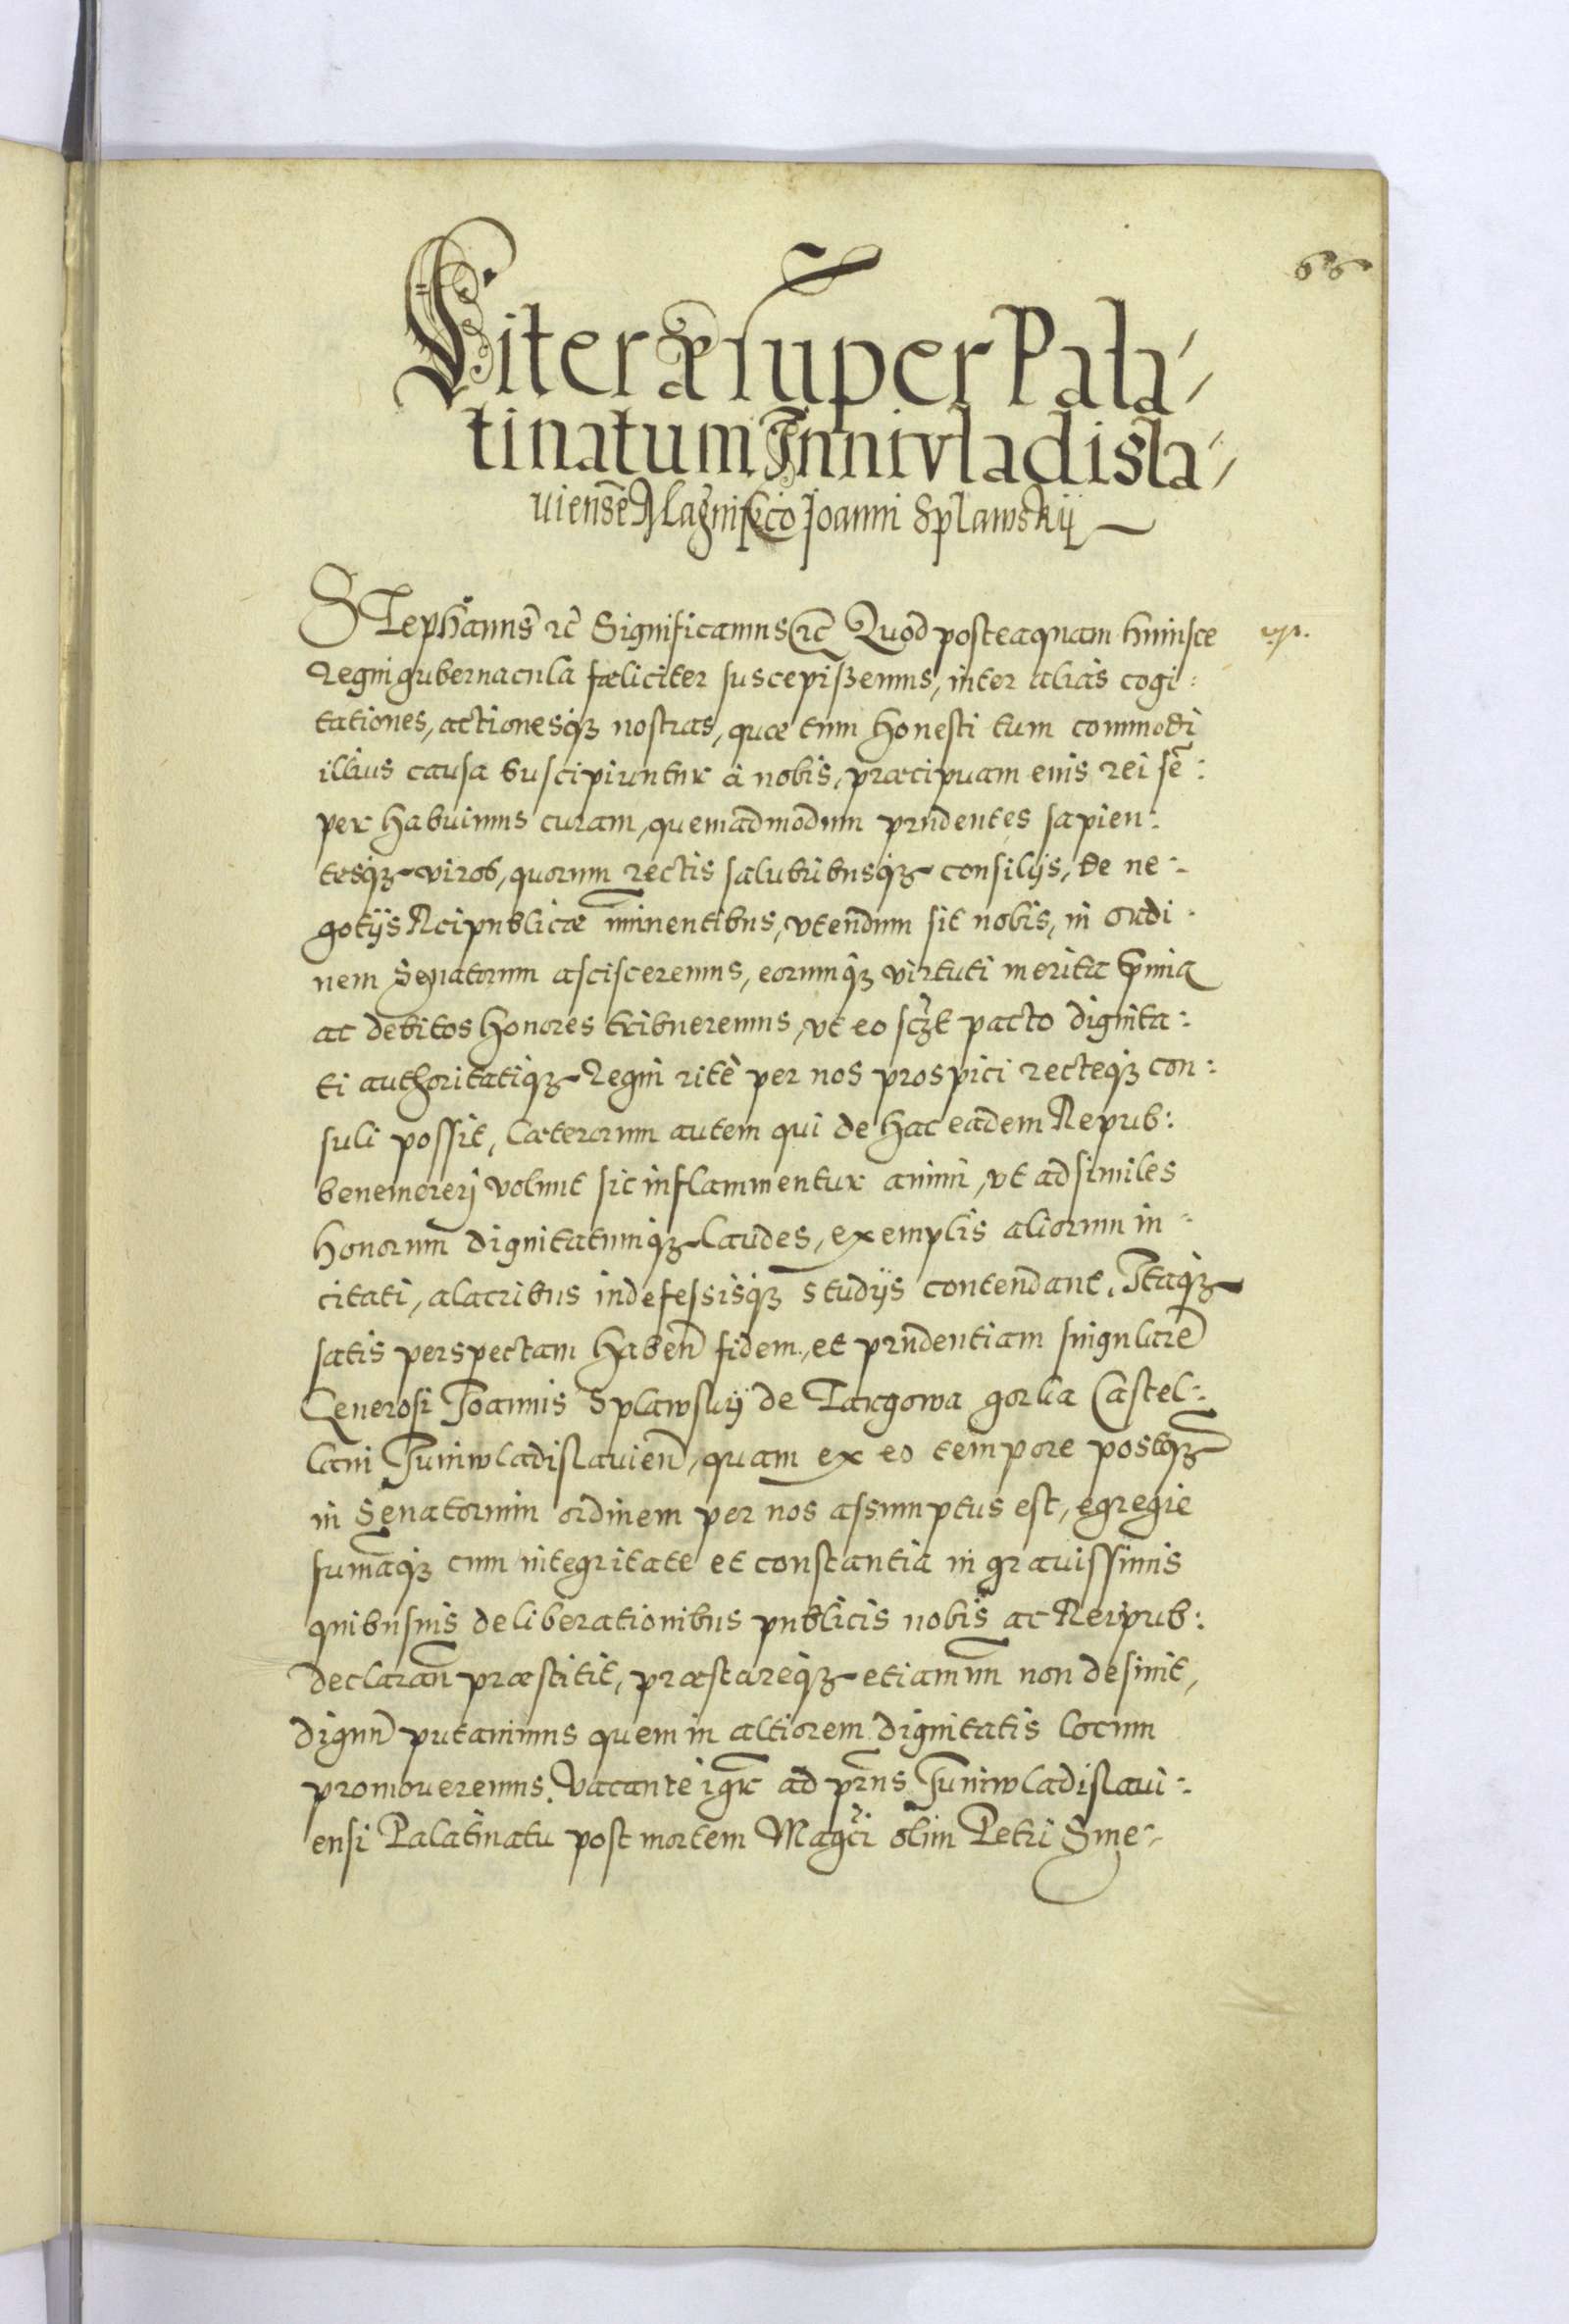 66
Literæ super Pala/
tinatum Inniwladisla/
uiensē Magnifico Joanni Splawskÿ
STephanus rc̄ Significamus rc̄ Quod posteaquam huiusce
Regni gubernacula fæliciter suscepißemus, inter alias cogi:
tationes, actionesqȝ nostras, quæ tum honesti tum commodi
illius causa suscipiuntur à nobis, præcipuam euis rei sē:
per habuimus curam, quemadmodum prudentes sapien:
tesqȝ viros, quorum rectis salubribusqȝ consilijs, de ne:
gotijs Reipublicæ iminentibus, vtendum sit nobis, in ordi
nem Senatorum ascisceremus, eorumqȝ virtuti merita
ac debitos honores tribueremus, vt eo sczt pacto dignita:
ti authoritatiqȝ Regni ritè per nos prospici recteqȝ con:
suli possit, Cæterorum autem qui de hac eadem Repub:
benemererj volunt sic inflammentur animi, vt ad similes
honorum dignitatumqȝ laudes, exemplis aliorum in:
citati, alacribus indefessisqȝ studijs contendant. Itaqȝ
satis perspectam haben̄ fidem, et prudentiam singularē
Generosi Joannis Splawskÿ de Targowa gorka Castel:
lani Juniwladislauien̄, quam ex eo tempore postqȝ
in Senatorum ordinem per nos assumptus est, egregie
sum̄aqȝ cum integritate et constantia in grauissimis
quibusuis deliberationibus publicis nobis ac Reipub:
declaran̄ præstitit, præstareqȝ etiamnū non desinit,
dignū putauimus quem in altiorem dignitatis locum
promoueremus. Vacante igr̄ ad prn̄s Juniwladislaui:
ensi Palatinatu post mortem Magci olim Petri Sme: